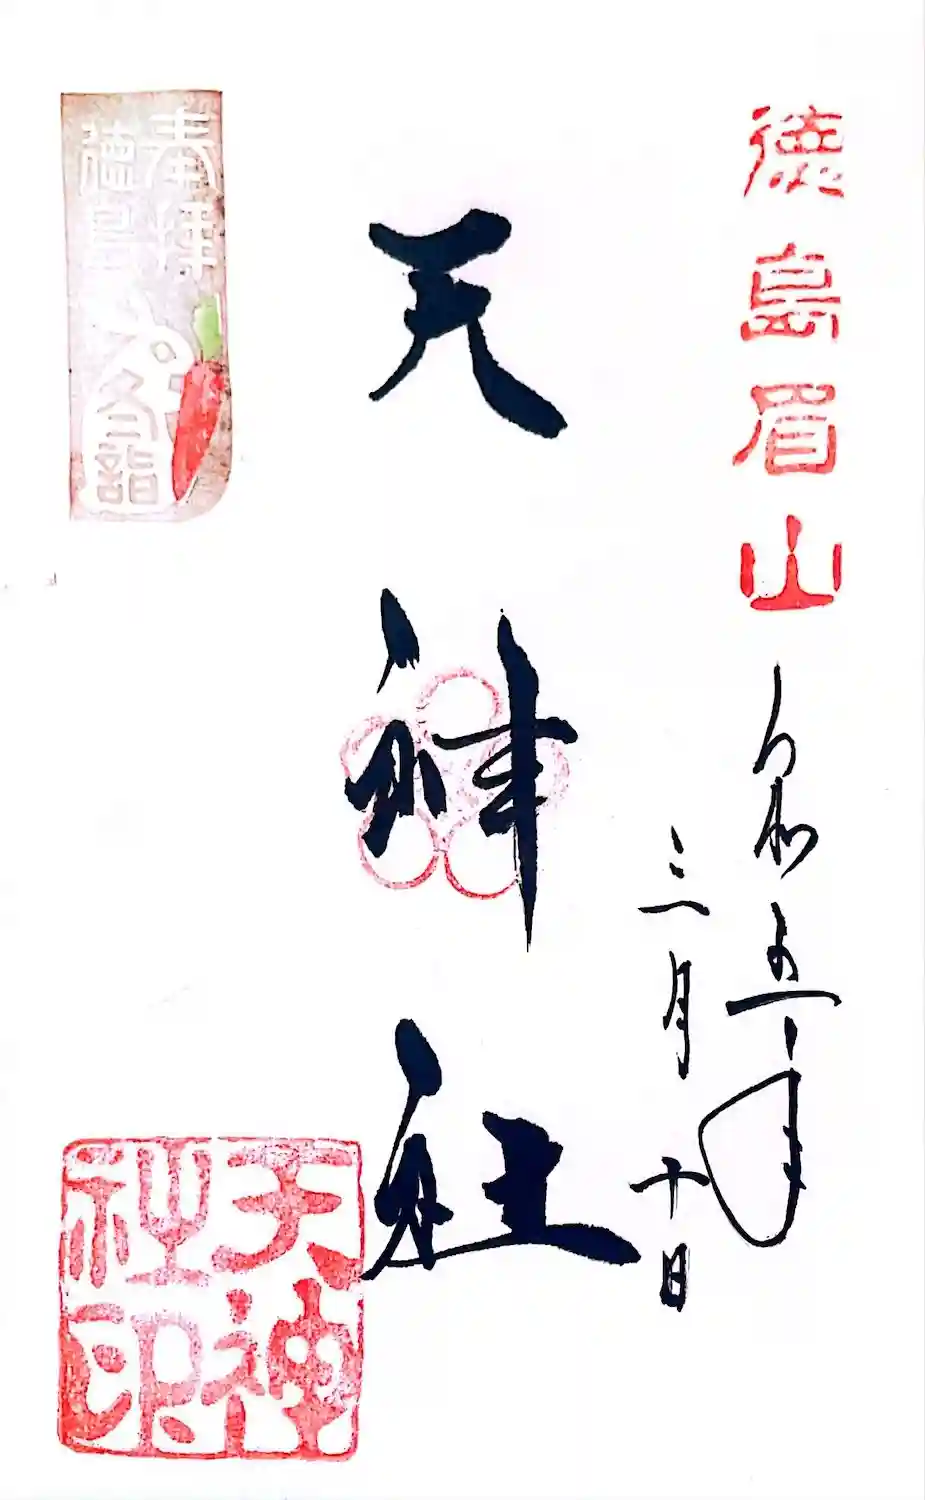 徳島眉山
令和五年
三月十日
天神社
奉拝
徳島
参詣
天神
社印